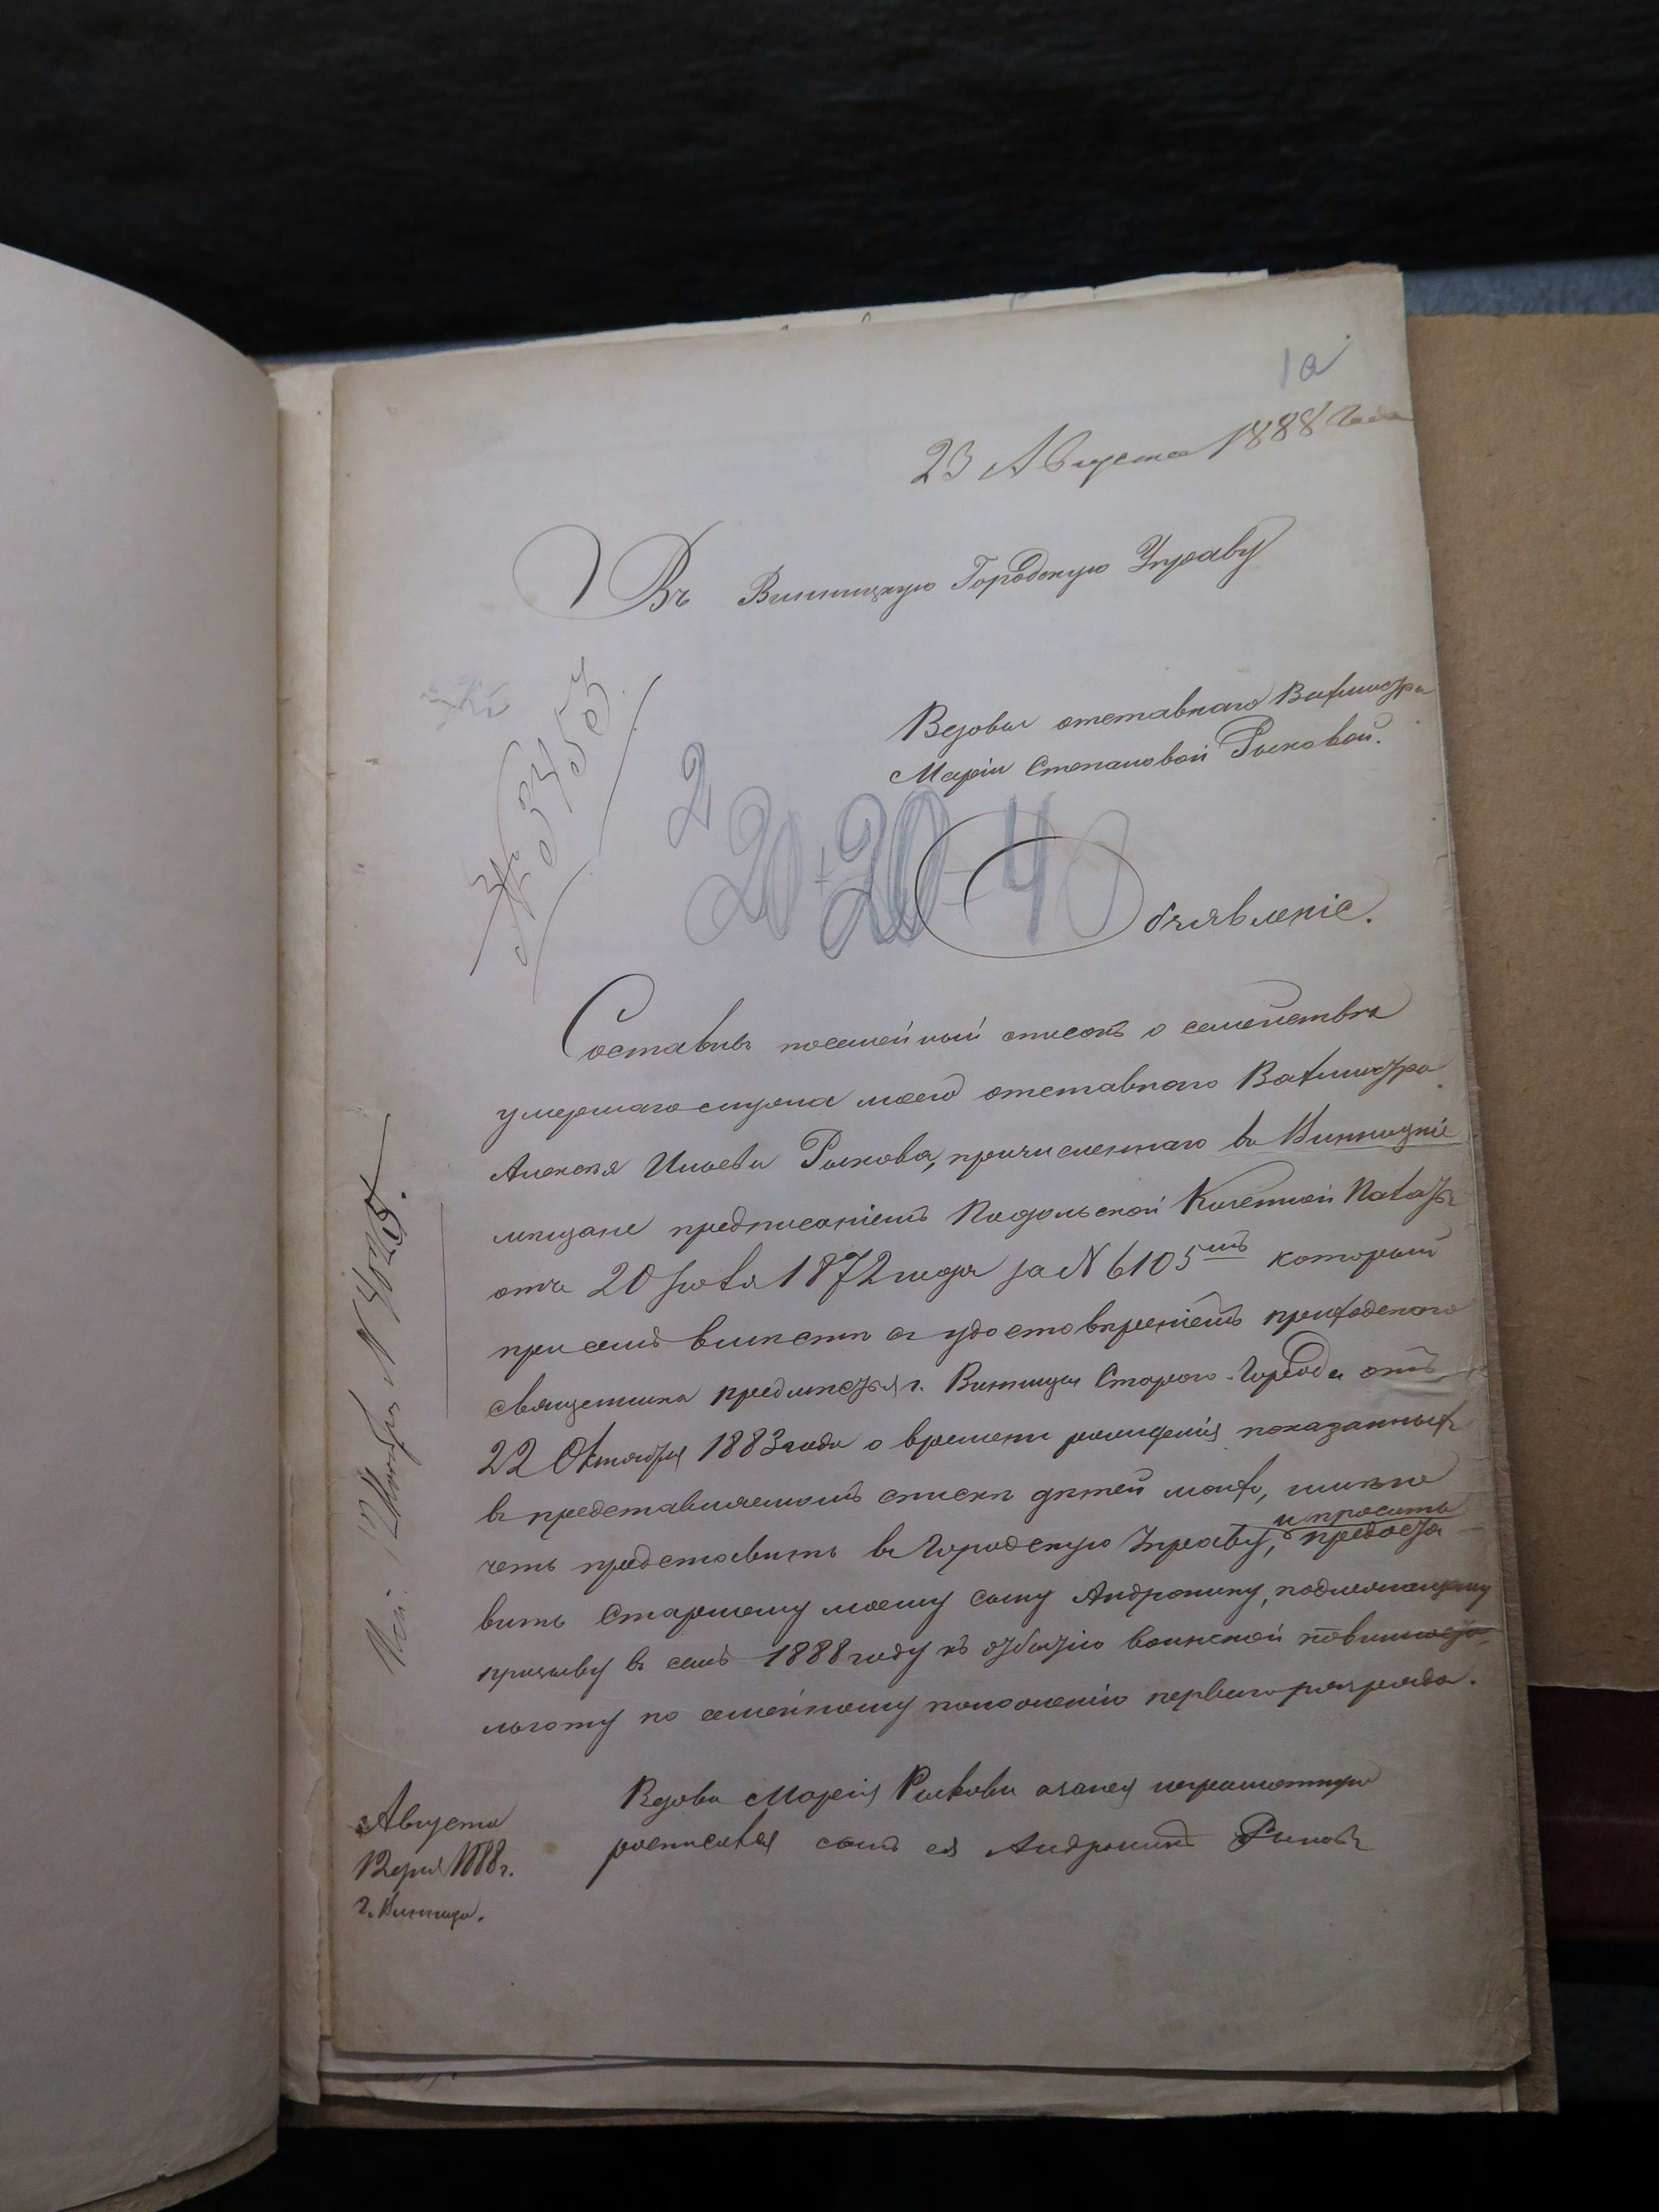 1а
23 Августа 1888 года
Въ Винницкую Городскую Управу
Вдовы отставнаго Вахмистра
Маріи Степановой Рыковой.
№ 3453
2
20+20-40
Объявленіе.
Составивъ посемейный списокъ о семействѣ
умершаго мужа моего отставнаго Вахмистра
Алексѣя Ильева Рыкова, причисленнаго въ Винницкіе
мѣщане предписаніемъ Подольской Казенной Палаты
отъ 20 1872 года за № 6105мъ который
при семъ вмѣстѣ съ удостовѣреніемъ приходскаго
священника предмѣстья г. Винницы Стараго Города отъ
22 Октября 1883 года о времени рожденія показанныхъ
въ представляемомъ спискѣ дѣтей моихъ, имѣю
и просить
честь представить въ Городскую Управу, предоста-
вить Старшему моему сыну Андронику, подлежащему
призыву въ семъ 1888 году къ отбытію воинской повинности
льготу по семейному положенію перваго разряда.
Вдова Марія Рыкова а за нея неграмотную
росписался сынъ ея Андроникъ Рыковъ
Августа
12 дня 1888 г.
г. Винница.
№ 4025.